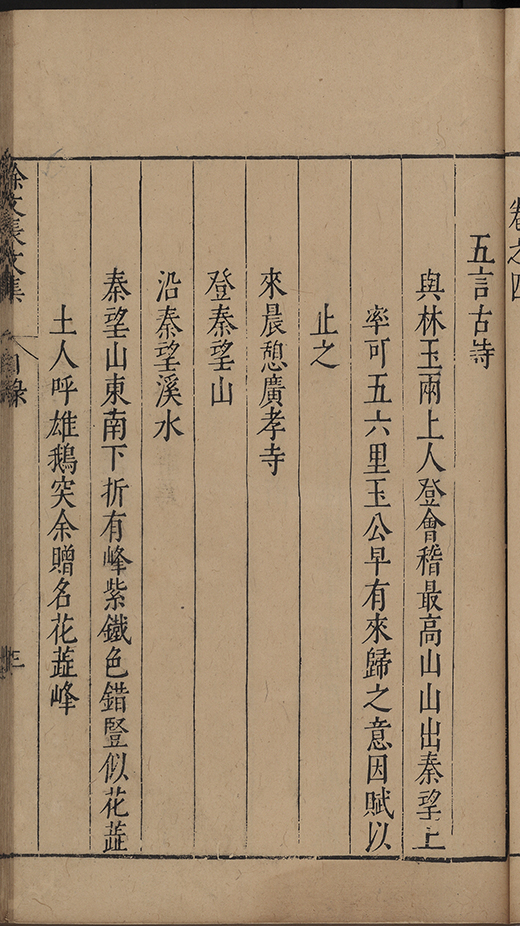 卷之四
五言古詩
與林玉兩上人登會稽最高山山出秦望上
率可五六里玉公早有來歸之意因賦以
止之
來晨憩廣孝寺
登秦望山
沿秦望溪水
秦望山東南下折有峰紫鐵色錯豎似花蕋
土人呼雄鵝突余贈名花蕋峰
徐文長文集
目錄
三